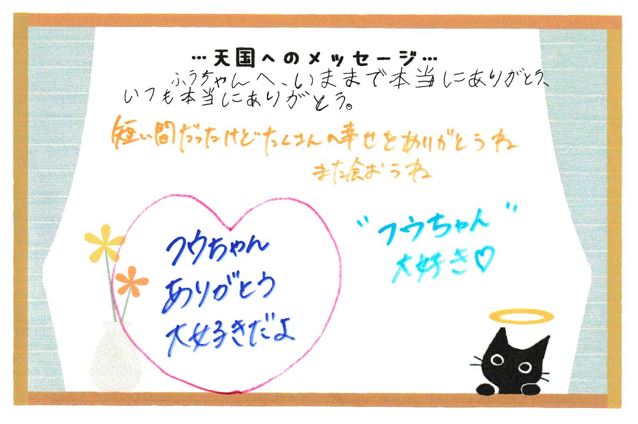 …天国へのメッセージ…
ふうちゃんへ、いままで本当にありがとう、
いつも本当にありがとう。
短い間だったけどたくさんの幸せをありがとうね
また会おうね
フウちゃん
ありがとう
大好きだよ
"フウちゃん"
大好き♡